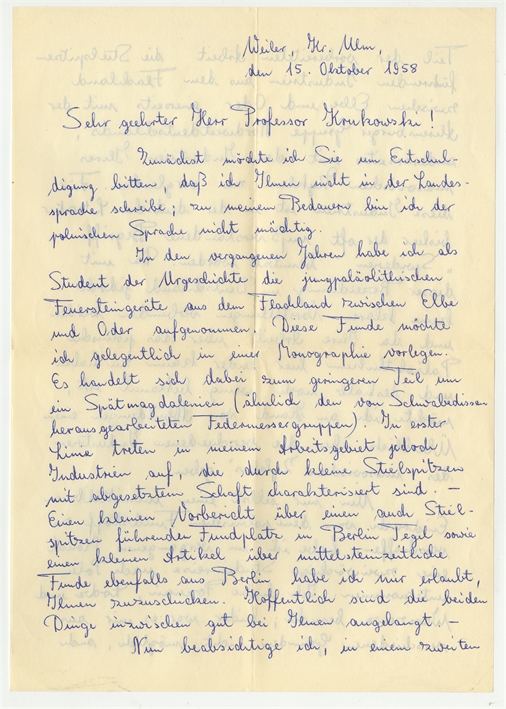 Weiler, Kr. Ulm,
den 15. Oktober 1958
Sehr geehrter Herr Professor Krukowski!
Zunächst möchte ich Sie um Entschul-
digung bitten, daß ich Ihnen nicht in der Landes-
sprache schreibe; zu meinem Bedauern bin ich der
polnischen Sprache nicht mächtig.
In den vergangenen Jahren habe ich als
Student der Urgeschichte die jungpaläolithischen
Feuersteingeräte aus dem Flachland zwischen Elbe
und Oder aufgenommen. Diese Funde möchte
ich gelegentlich in einer Monographie vorlegen.
Es handelt sich dabei zum geringeren Teil um
ein Spätmagdalenien (ähnlich den von Schwabedissen
herausgearbeiteten Federmessergruppen). In erster
Linie treten in meinem Arbeitsgebiet jedoch
Industrien auf, die durch kleine Stielspitzen
mit abgesetztem Schaft charakterisiert sind. –
Einen kleinen Vorbericht über einen auch Stiel-
spitzen führenden Fundplatz in Berlin Tegel sowie
einen kleinen Artikel über mittelsteinzeitliche
Funde ebenfalls aus Berlin habe ich mir erlaubt,
Ihnen zuzuschicken. Hoffentlich sind die beiden
Dinge inzwischen gut bei Ihnen angelangt –
Nun beabsichtige ich, in einem zweiten